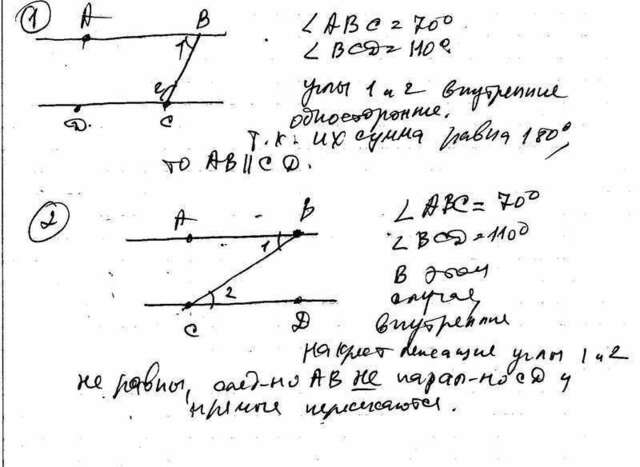 1
A B
∠ABC = 70°
∠BCD = 110°
1
2
D. C
углы 1 и 2 внутренние
односторонние.
Т.к. их сумма равна 180°,
то AB || CD.
2
A B
∠ABC = 70°
∠BCD = 110°
1
2
C D
В этом
случае
внутренние
накрест лежащие углы 1 и 2
не равны, след-но AB не парал-но CD и
прямые пересекаются.